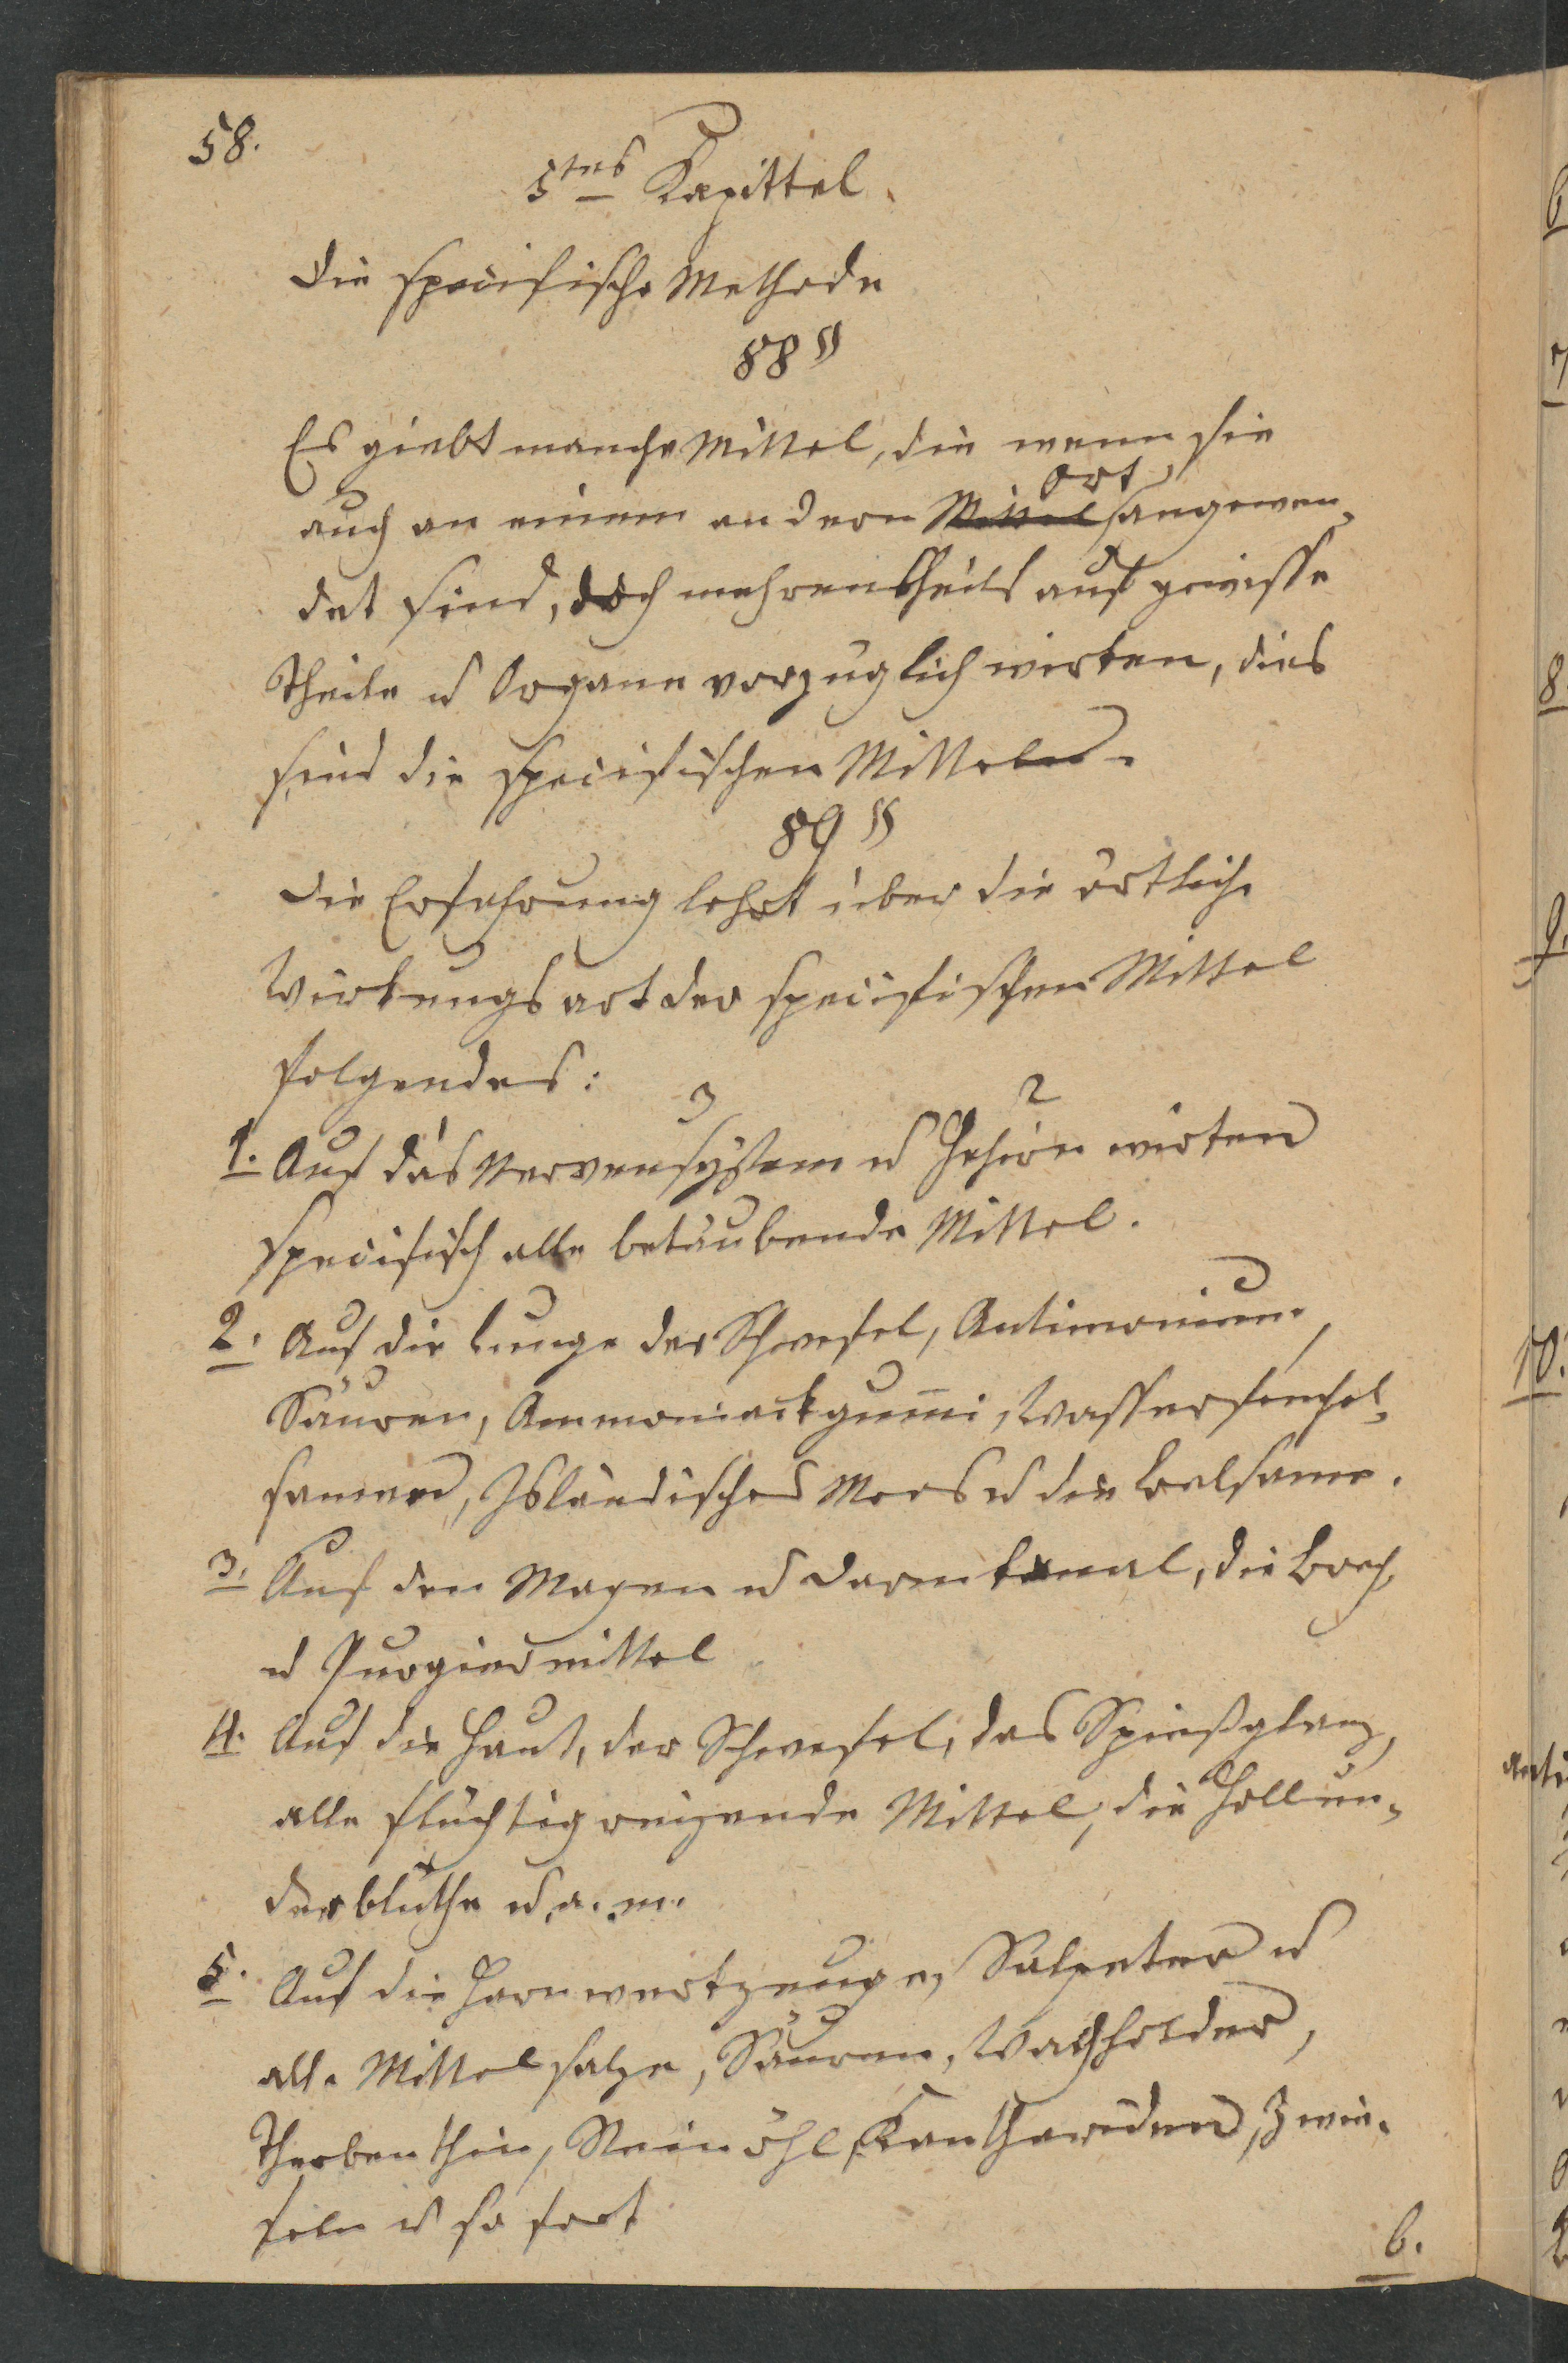 58.
5tes Kapittel.
Die specifische Methode
88 §
Es giebt manche Mittel, die wenn sie
Ort
auch an einem andern Mittel angewen-
det sind, doch mehrentheils auf gewisse
Theile u Organe vorzüglich wirken, dies
sind die specifischen Mitteln.
89 §
Die Erfahrung lehrt über die örtliche
Wirkungsart der specifischen Mittel
folgendes:
3 2
1. Auf das Nervensystem u Gehirn wirken
specifisch alle betäubende Mittel.
2. Auf die Lunge der Schwefel, Antimonium,
Säuren, Ammoniackgum̅i, Wasserfenchel-
samen, Isländisches Moos u die Balsame.
3. Auf den Magen u Darmkanal, die Brech
u Purgiermittel
4. Auf die Haut, der Schwefel, das Spießglanz,
alle flüchtig reizende Mittel, die Hollun-
derblüthe u.a.m.
5. Auf die Harnwerkzeuge, Salpeter u
alle Mittelsalze, Säuren, Wachholder,
Therbenthin, Steinöhl, Kanthariden, Zwie-
feln u so fort
6.